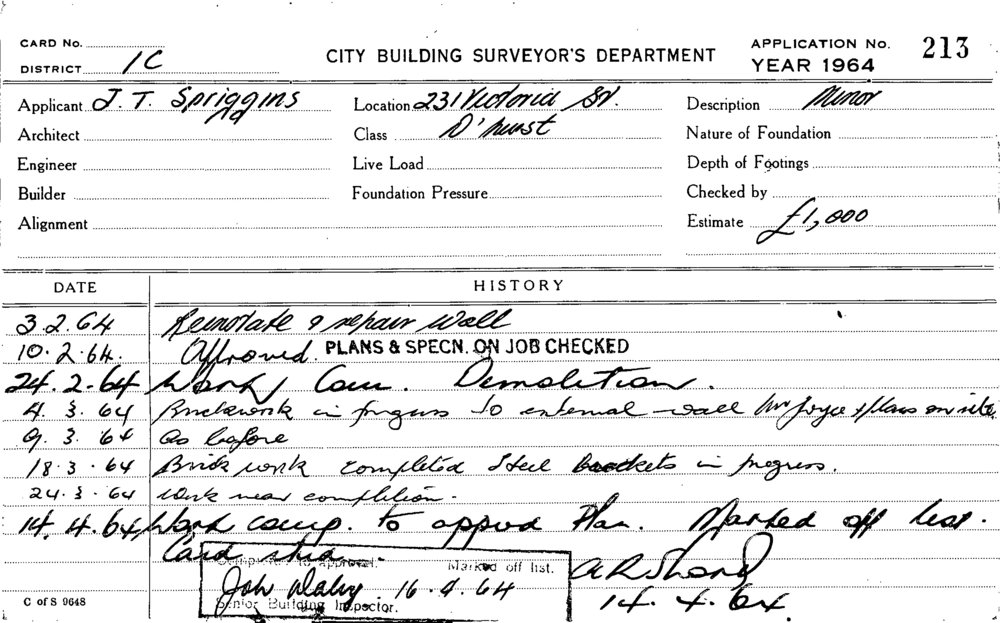 CARD No.
DISTRICT 1C
CITY BUILDING SURVEYOR'S DEPARTMENT
APPLICATION No. 213
YEAR 1964
Applicant J. T. Spriggins
Location 231 Victoria St.
Description Minor
Architect
Class D'hurst
Nature of Foundation
Engineer
Live Load
Depth of Footings
Builder
Foundation Pressure
Checked by
Alignment
Estimate £1,000
DATE HISTORY
3.2.64 Reinstate & repair wall
10.2.64. Approved. PLANS & SPECN. ON JOB CHECKED
24.2.64 Work Com. Demolition.
4.3.64 Brickwork in progress to external wall Mr Joyce plans on site.
9.3.64 As before
18.3.64 Brick work completed Steel brackets in progress.
24.3.64 Work near completion.
14.4.64 Work comp. to approd Plan. Marked off list.
Card
Completed to approval. Marked off list.
16.4.64
Senior Building Inspector.
14.4.64
C of S 9648